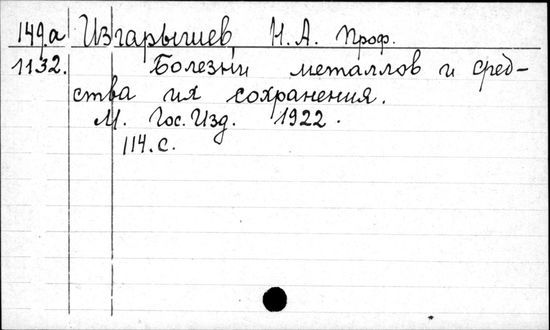 149.а Изгарышев, Н. А. Проф.
1132. Болезни металлов и сред-
ства их сохранения.
М. Гос. Изд. 1922.
114. с.